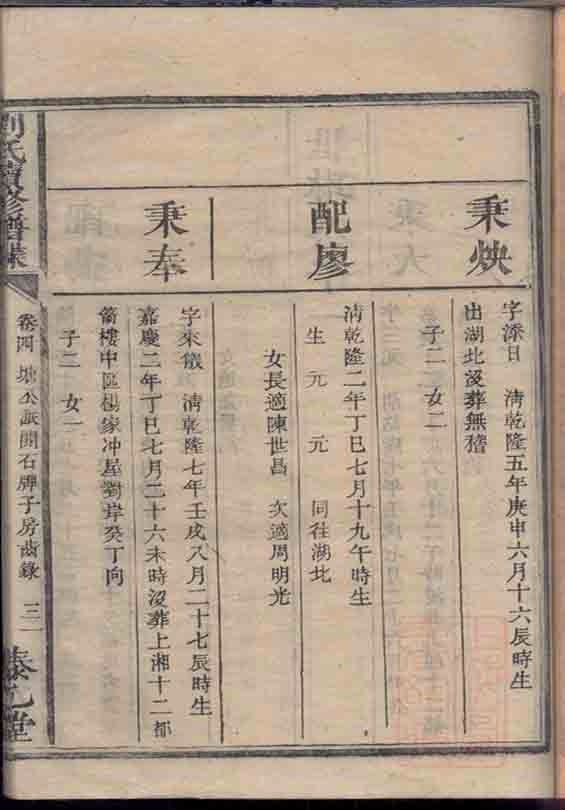 秉炴
字添日 清乾隆五年庚申六月十六辰時生
出湖北沒葬無稽
子二 女二
配廖
清乾隆二年丁巳七月十九午時生
生元 元 同往湖北
女長適陳世昌 次適周明光
秉奉
字來儀 清乾隆七年壬戌八月二十七辰時生
嘉慶二年丁巳七月二十六未時沒葬上湘十二都
箭樓中區楊家冲屋對岸癸丁向
子二 女一
劉氏續修譜牒
卷四 塘公派開石牌子房齒錄 三
堂